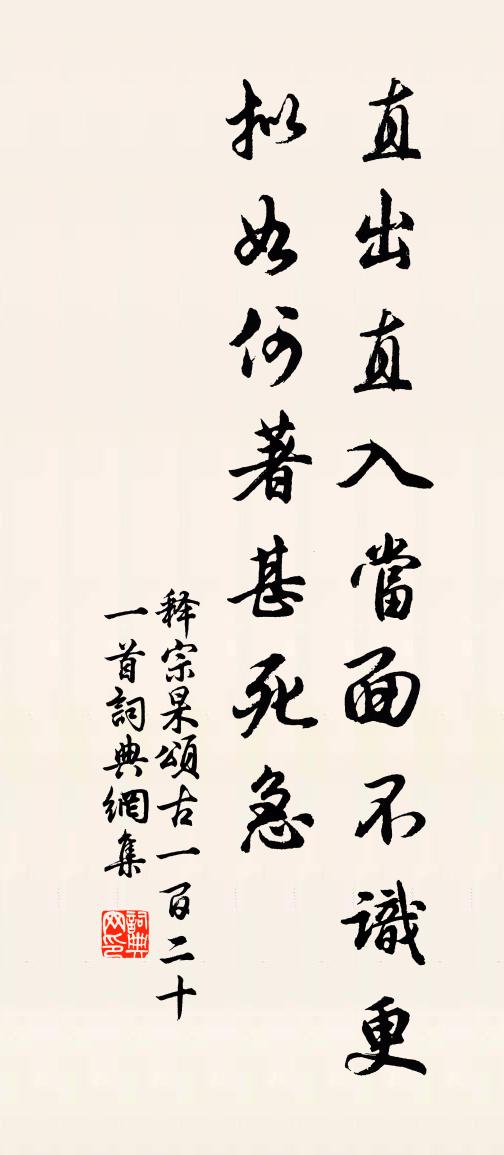 直出直入當面不識更
拟如何著甚死急
释宗杲頌古一百二十
一首詞典網集
詞典网印